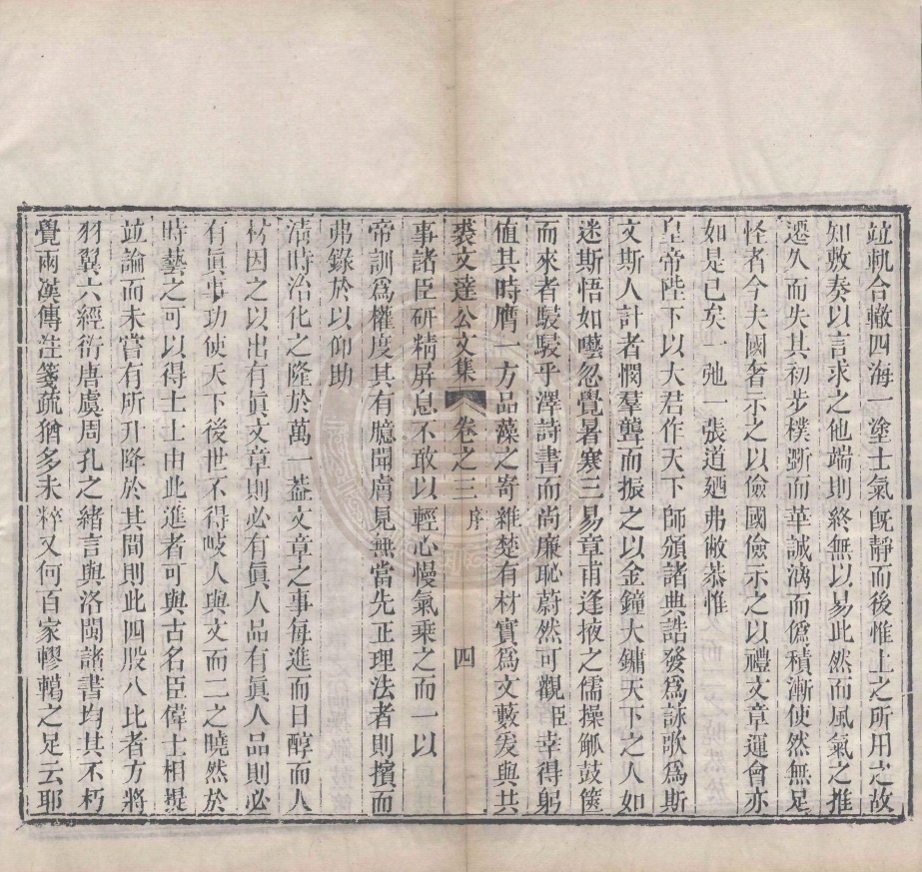 竝軌合轍四海一塗士氣旣靜而後惟上之所用之故
知敷奏以言求之他端則終無以易此然而風氣之推
遷久而失其初步樸斵而華誠漓而僞積漸使然無足
怪者今夫國奢示之以儉國儉示之以禮文章運會亦
如是已矣一弛一張道廼弗敝恭惟
皇帝陛下以大君作天下師頒諸典誥發爲詠歌爲斯
文斯人計者憫羣聾而振之以金鐘大鏞天下之人如
迷斯悟如囈忽覺暑寒三易章甫逢掖之儒操觚鼓篋
而來者駸駸乎澤詩書而尚廉恥蔚然可觀臣幸得躬
值其時膺一方品藻之寄雜楚有材實爲文藪爰與共
裘文達公文集 卷之三 序 四
事諸臣硏精屏息不敢以輕心慢氣乘之而一以
帝訓爲權度其有臆聞膚見無當先正理法者則擯而
弗錄於以仰助
淸時治化之隆於萬一葢文章之事每進而日醇而人
材因之以出有眞文章則必有眞人品有眞人品則必
有眞事功使天下後世不得岐人與文而二之曉然於
時藝之可以得士士由此進者可與古名臣偉士相提
竝論而未嘗有所升降於其間則此四股八比者方將
羽翼六經衍唐虞周孔之緒言與洛閩諸書均其不朽
覺兩漢傳注箋疏猶多未粹又何百家轇轕之足云耶